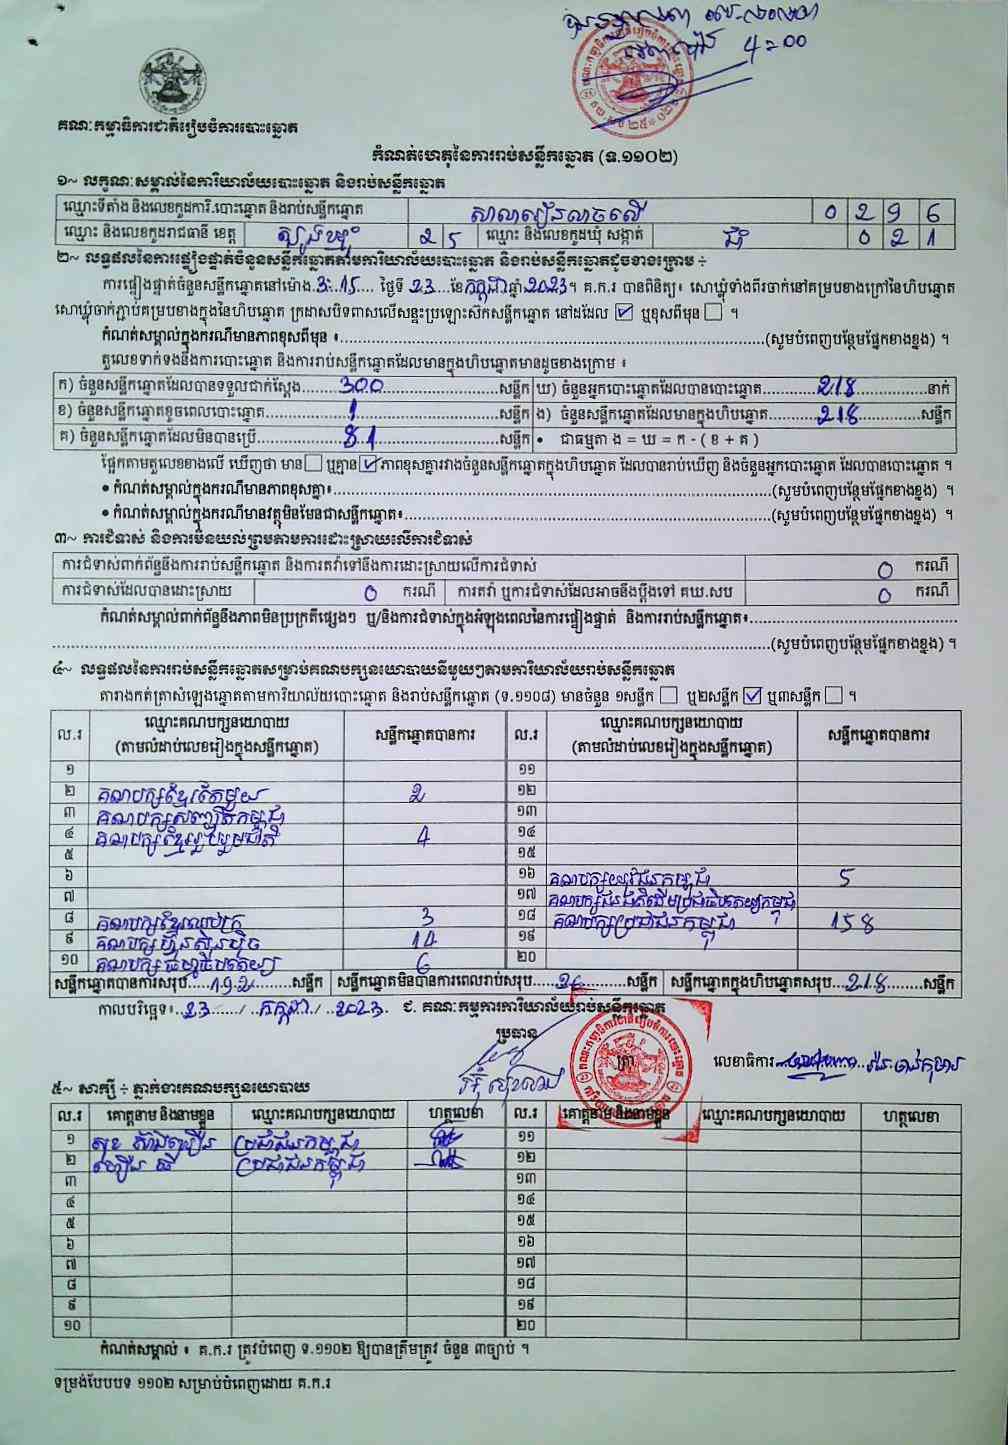 4:00
គណៈកម្មាធិការជាតិរៀបចំការបោះឆ្នោត
កំណត់ហេតុនៃការរាប់សន្លឹកឆ្នោត (ទ.១១០២)
១~ លក្ខណៈសម្គាល់នៃការិយាល័យបោះឆ្នោត និងរាប់សន្លឹកឆ្នោត
ឈ្មោះទីតាំង និងលេខកូដការិ.បោះឆ្នោត និងរាប់សន្លឹកឆ្នោត 0 2 9 6
ឈ្មោះ និងលេខកូដរាជធានី ខេត្ត ត្បូងឃ្មុំ 2 5 ឈ្មោះ និងលេខកូដឃុំ សង្កាត់ ជាំ 0 2 1
២~ លទ្ធផលនៃការផ្ទៀងផ្ទាត់ចំនួនសន្លឹកឆ្នោតតាមការិយាល័យបោះឆ្នោត និងរាប់សន្លឹកឆ្នោតដូចខាងក្រោម ÷
ការផ្ទៀងផ្ទាត់ចំនួនសន្លឹកឆ្នោតនៅម៉ោង 3:15 ថ្ងៃទី 23 ខែ កក្កដា ឆ្នាំ 2023 ។ គ.ក.រ បានពិនិត្យ៖ សោឃ្លុំទាំងពីរចាក់នៅគម្របខាងក្រៅនៃហិបឆ្នោត
សោឃ្លុំចាក់ភ្ជាប់គម្របខាងក្នុងនៃហិបឆ្នោត ក្រដាសបិទពាសលើសន្ទះប្រឡោះស៊កសន្លឹកឆ្នោត នៅដដែល ☑ ឬខុសពីមុន ☐ ។
កំណត់សម្គាល់ក្នុងករណីមានភាពខុសពីមុន ៖ (សូមបំពេញបន្ថែមផ្នែកខាងខ្នង) ។
តួលេខទាក់ទងនឹងការបោះឆ្នោត និងការរាប់សន្លឹកឆ្នោតដែលមានក្នុងហិបឆ្នោតមានដូចខាងក្រោម ៖
ក) ចំនួនសន្លឹកឆ្នោតដែលបានទទួលជាក់ស្តែង 300 សន្លឹក ឃ) ចំនួនអ្នកបោះឆ្នោតដែលបានបោះឆ្នោត 218 នាក់
ខ) ចំនួនសន្លឹកឆ្នោតខូចពេលបោះឆ្នោត 1 សន្លឹក ង) ចំនួនសន្លឹកឆ្នោតដែលមានក្នុងហិបឆ្នោត 218 សន្លឹក
គ) ចំនួនសន្លឹកឆ្នោតដែលមិនបានប្រើ 81 សន្លឹក • ជាធម្មតា ង = ឃ = ក - ( ខ + គ )
ផ្អែកតាមតួលេខខាងលើ ឃើញថា មាន ☐ ឬគ្មាន ☑ ភាពខុសគ្នារវាងចំនួនសន្លឹកឆ្នោតក្នុងហិបឆ្នោត ដែលបានរាប់ឃើញ និងចំនួនអ្នកបោះឆ្នោត ដែលបានបោះឆ្នោត ។
• កំណត់សម្គាល់ក្នុងករណីមានភាពខុសគ្នា៖ (សូមបំពេញបន្ថែមផ្នែកខាងខ្នង) ។
• កំណត់សម្គាល់ក្នុងករណីមានវត្ថុមិនមែនជាសន្លឹកឆ្នោត៖ (សូមបំពេញបន្ថែមផ្នែកខាងខ្នង) ។
៣~ ការជំទាស់ និងការមិនយល់ព្រមតាមការដោះស្រាយលើការជំទាស់
ការជំទាស់ពាក់ព័ន្ធនឹងការរាប់សន្លឹកឆ្នោត និងការតវ៉ាទៅនឹងការដោះស្រាយលើការជំទាស់ 0 ករណី
ការជំទាស់ដែលបានដោះស្រាយ 0 ករណី ការតវ៉ា ឬការជំទាស់ដែលអាចនឹងប្តឹងទៅ គឃ.សប 0 ករណី
កំណត់សម្គាល់ពាក់ព័ន្ធនឹងភាពមិនប្រក្រតីផ្សេងៗ ឬ/និងការជំទាស់ក្នុងអំឡុងពេលនៃការផ្ទៀងផ្ទាត់ និងការរាប់សន្លឹកឆ្នោត៖
(សូមបំពេញបន្ថែមផ្នែកខាងខ្នង) ។
៤~ លទ្ធផលនៃការរាប់សន្លឹកឆ្នោតសម្រាប់គណបក្សនយោបាយនីមួយៗតាមការិយាល័យរាប់សន្លឹកឆ្នោត
តារាងកត់ត្រាសំឡេងឆ្នោតតាមការិយាល័យបោះឆ្នោត និងរាប់សន្លឹកឆ្នោត (ទ.១១០៨) មានចំនួន ១សន្លឹក ☐ ឬ២សន្លឹក ☑ ឬ៣សន្លឹក ☐ ។
ល.រ ឈ្មោះគណបក្សនយោបាយ (តាមលំដាប់លេខរៀងក្នុងសន្លឹកឆ្នោត) សន្លឹកឆ្នោតបានការ ល.រ ឈ្មោះគណបក្សនយោបាយ (តាមលំដាប់លេខរៀងក្នុងសន្លឹកឆ្នោត) សន្លឹកឆ្នោតបានការ
១ ១១
២ គណបក្សខ្មែរតែមួយ 2 ១២
៣ គណបក្សសញ្ជាតិកម្ពុជា ១៣
៤ គណបក្សខ្មែររួបរួមជាតិ 4 ១៤
៥ ១៥
៦ ១៦ គណបក្សយុវជនកម្ពុជា 5
៧ ១៧
៨ គណបក្សខ្មែរឈប់ក្រ 3 ១៨ គណបក្សប្រជាជនកម្ពុជា 158
៩ គណបក្សហ៊្វុនស៊ិនប៉ិច 14 ១៩
១០ គណបក្សធម្មាធិបតេយ្យ 6 ២០
សន្លឹកឆ្នោតបានការសរុប 192 សន្លឹក សន្លឹកឆ្នោតមិនបានការពេលរាប់សរុប 26 សន្លឹក សន្លឹកឆ្នោតក្នុងហិបឆ្នោតសរុប 218 សន្លឹក
កាលបរិច្ឆេទ៖ 23 / កក្កដា / 2023. ជ. គណៈកម្មការការិយាល័យរាប់សន្លឹកឆ្នោត
ប្រធាន
ត្រា
លេខាធិការ
៥~ សាក្សី ÷ ភ្នាក់ងារគណបក្សនយោបាយ
ល.រ គោត្តនាម និងនាមខ្លួន ឈ្មោះគណបក្សនយោបាយ ហត្ថលេខា ល.រ គោត្តនាម និងនាមខ្លួន ឈ្មោះគណបក្សនយោបាយ ហត្ថលេខា
១ ប្រជាជនកម្ពុជា ១១
២ ប្រជាជនកម្ពុជា ១២
៣ ១៣
៤ ១៤
៥ ១៥
៦ ១៦
៧ ១៧
៨ ១៨
៩ ១៩
១០ ២០
កំណត់សម្គាល់ ៖ គ.ក.រ ត្រូវបំពេញ ទ.១១០២ ឱ្យបានត្រឹមត្រូវ ចំនួន ៣ច្បាប់ ។
ទម្រង់បែបបទ ១១០២ សម្រាប់បំពេញដោយ គ.ក.រ